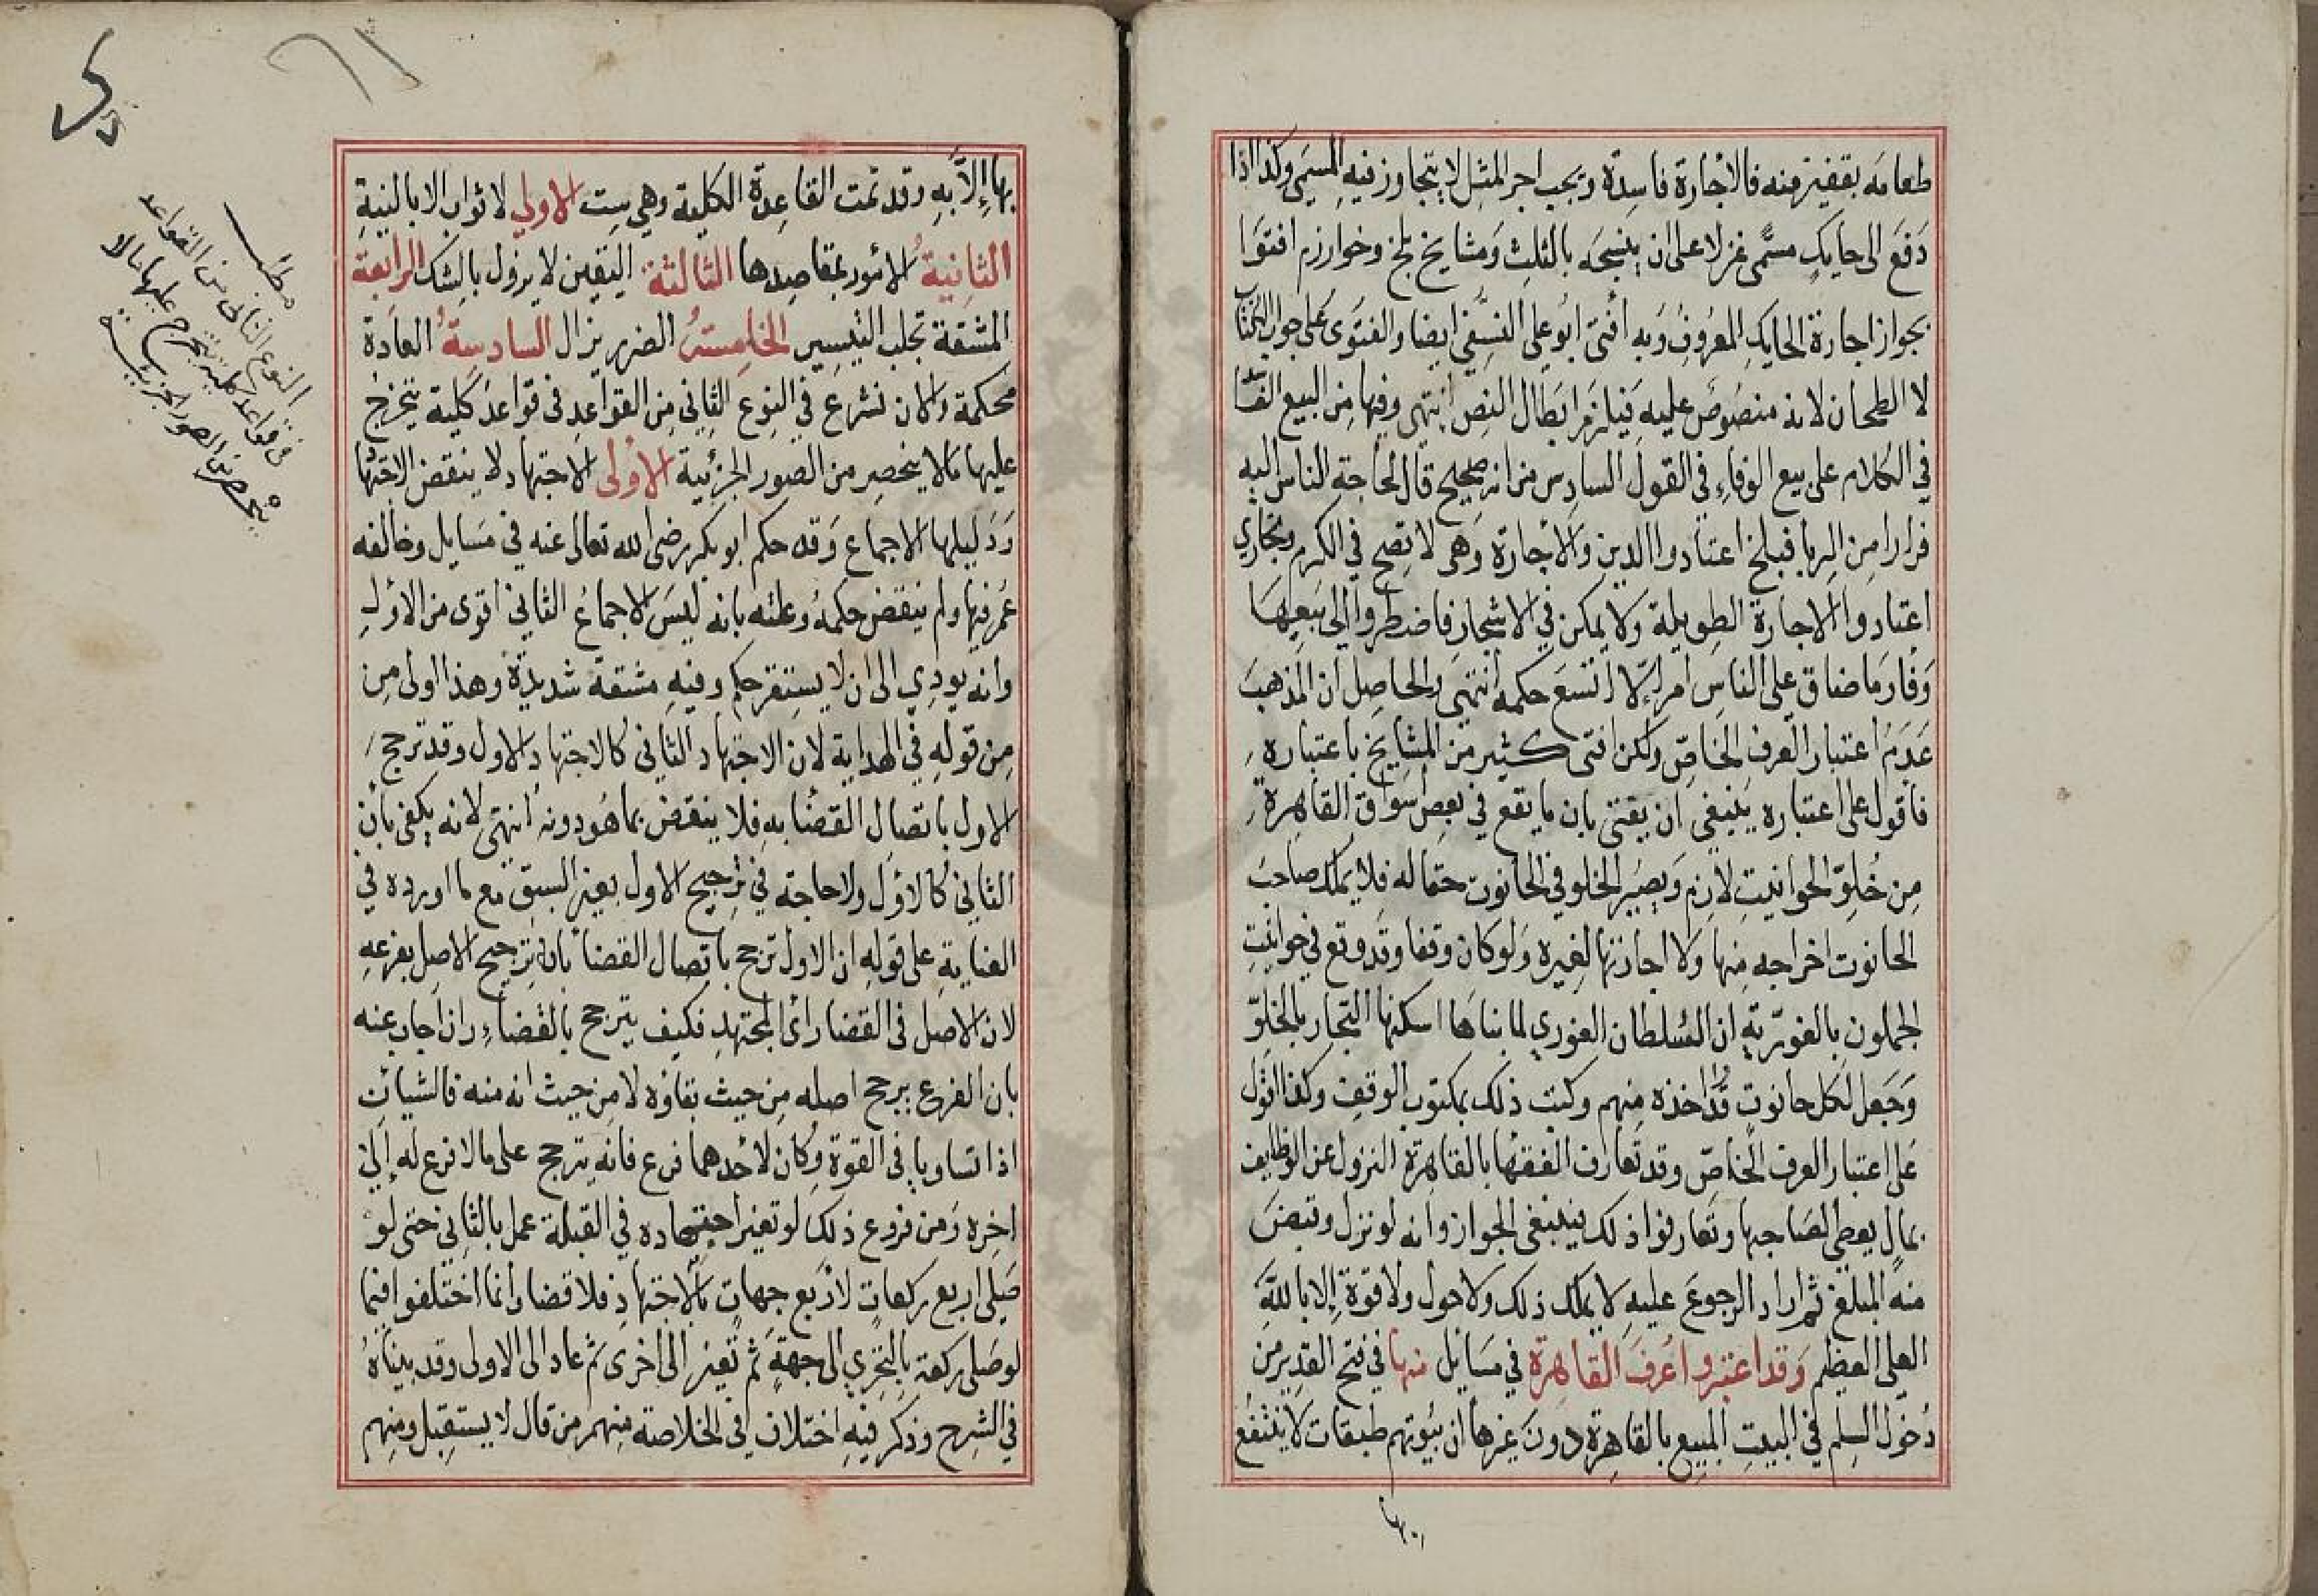 طعامه بقفيز منه فالاجارة فاسدة ويجب اجر المثل لا يتجاوز فيه المسمى وكذا اذا
دفع الى حايك مسمى غزلا على ان ينسجه بالثلث ومشايخ بلخ وخوارزم افتوا
بجواز اجارة الحايك المعروف وبه افتى ابو علي النسفي ايضا والفتوى على جواب الكتاب
لا الطحان لانه منصوص عليه فيلزم ابطال النص انتهى وفيها من البيع الفاسد
في الكلام على بيع الوفاء في القول السادس من انه صحيح قال لحاجة الناس اليه
فرارا من الربا فبلخ اعتادوا الدين والاجارة وهي لا تصح في الكرم وبخارى
اعتادوا الاجارة الطويلة ولا يمكن في الاشجار فاضطروا الى بيعها
وفاء وما ضاق على الناس امر الا اتسع حكمه انتهى والحاصل ان المذهب
عدم اعتبار العرف الخاص ولكن افتى كثير من المشايخ باعتباره
فاقول على اعتباره ينبغي ان يفتى بان ما يقع في بعض اسواق القاهرة
من خلو الحوانيت لازم ويصير الخلو في الحانوت حقا له فلا يملك صاحب
الحانوت اخراجه منها ولا اجازتها لغيره ولو كان وقفا وقد وقع في حوانيت
الجملون بالغورية ان السلطان الغوري لما بناها اسكنها التجار بالخلو
وجعل لكل حانوت قدرا اخذه منهم وكتب ذلك بمكتوب الوقف وكذا اقول
على اعتبار العرف الخاص وقد تعارف الفقها بالقاهرة النزول عن الوظايف
بمال يعطى لصاحبها وتعارفوا ذلك فينبغي الجواز وانه لو نزل وقبض
منه المبلغ ثم اراد الرجوع عليه لا يملك ذلك ولا حول ولا قوة الا بالله
العلي العظيم وقد اعتبروا عرف القاهرة في مسايل منها في فتح القدير من
دخول السلم في البيت المبيع بالقاهرة دون غيرها ان بيوتهم طبقات لا ينتفع
بها
٦١
بها إلا به وقد تمت القاعدة الكلية وهي ست الاولى لا ثواب الا بالنية
الثانية الامور بمقاصدها الثالثة اليقين لا يزول بالشك الرابعة
المشقة تجلب التيسير الخامسة الضرر يزال السادسة العادة
محكمة والان نشرع في النوع الثاني من القواعد في قواعد كلية يتخرج
عليها ما لا ينحصر من الصور الجزئية الاولى الاجتهاد لا ينقض الاجتهاد
ودليلها الاجماع وقد حكم ابو بكر رضى الله تعالى عنه في مسايل وخالفه
عمر فيها ولم ينقض حكمه وعلته بانه ليس الاجماع الثاني اقوى من الاول
وانه يودي الى ان لا يستقر حكم وفيه مشقة شديدة وهذا اولى من
من قوله في الهداية لان الاجتهاد الثاني كالاجتهاد الاول وقد ترجح
الاول باتصال القضا به فلا ينقض بما هو دونه انتهى لانه يكفي بان
الثاني كالاول ولا حاجة في ترجيح الاول بغير السبق مع ما اورده في
العناية على قوله ان الاول ترجح باتصال القضا بان ترجيح الاصل بفرعه
لان الاصل في القضا رائ المجتهد فكيف يترجح بالقضاء وان اجاب عنه
بان الفرع يرجح اصله من حيث بقاؤه لا من حيث انه منه فالشيان
اذا تساويا في القوة وكان لاحدهما فرع فانه يترجح على ما لا فرع له إلى
اخره ومن فروع ذلك لو تغير اجتهاده في القبلة عمل بالثاني حتى لو
صلى اربع ركعات لاربع جهات بالاجتهاد فلا قضا وانما اختلفوا فيما
لو صلى ركعة بالتحري الى جهة ثم تغير الى اخرى ثم عاد الى الاولى وقد بيناه
في الشرح وذكر فيه اختلاف في الخلاصة منهم من قال لا يستقبل ومنهم
مطلب
النوع الثاني من القواعد
في قواعد كلية يتخرج عليها ما لا
ينحصر من الصور الجزئية